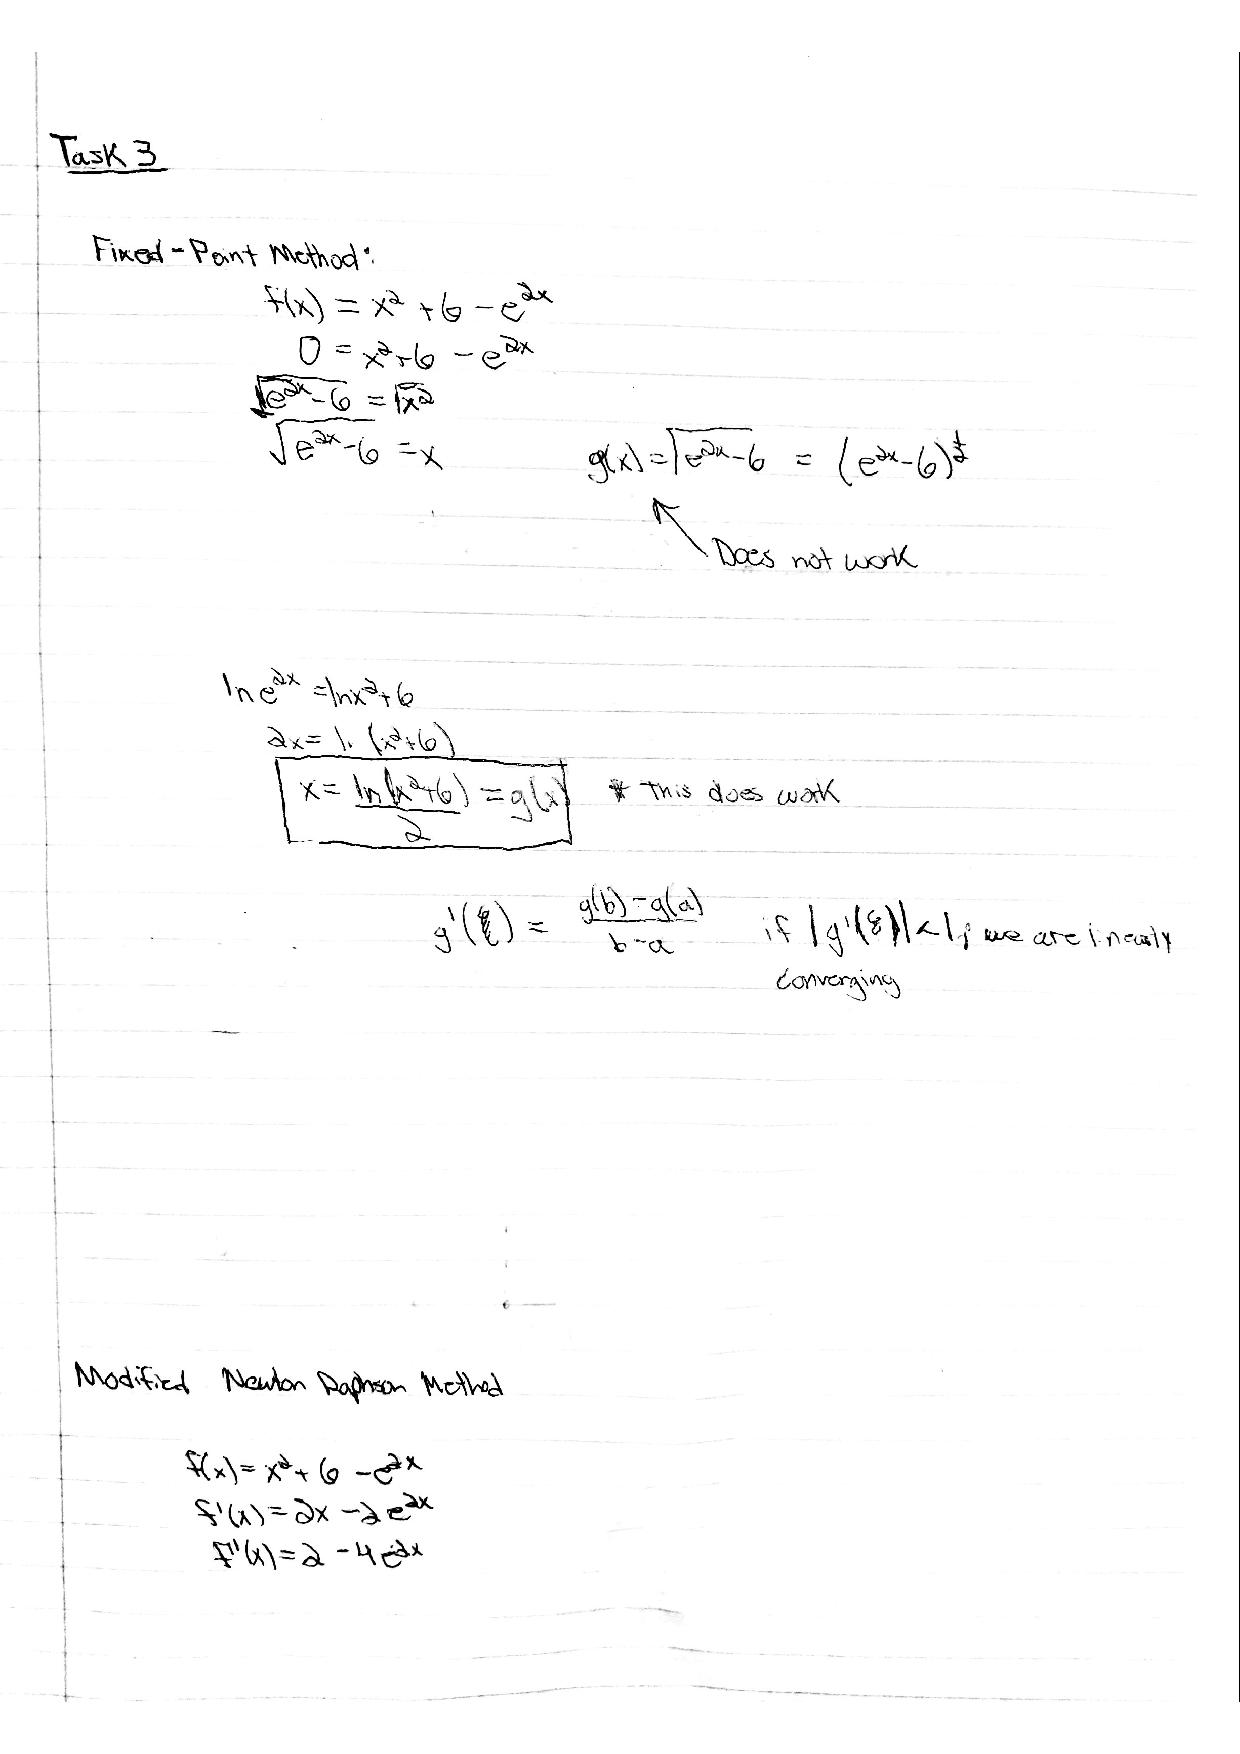 Task 3
Fixed-Point Method:
f(x) = x² + 6 - e^2x
0 = x² + 6 - e^2x
√(e^2x - 6) = √x²
√(e^2x - 6) = x
g(x) = √(e^2x - 6) = (e^2x - 6)^½
Does not work
ln e^2x = ln x² + 6
2x = ln (x² + 6)
x = ln(x² + 6) / 2 = g(x) * This does work
g'(ξ) = g(b) - g(a) / b - a if |g'(ξ)| < 1, we are linearly
converging
Modified Newton Raphson Method
f(x) = x² + 6 - e^2x
f'(x) = 2x - 2e^2x
f''(x) = 2 - 4e^2x